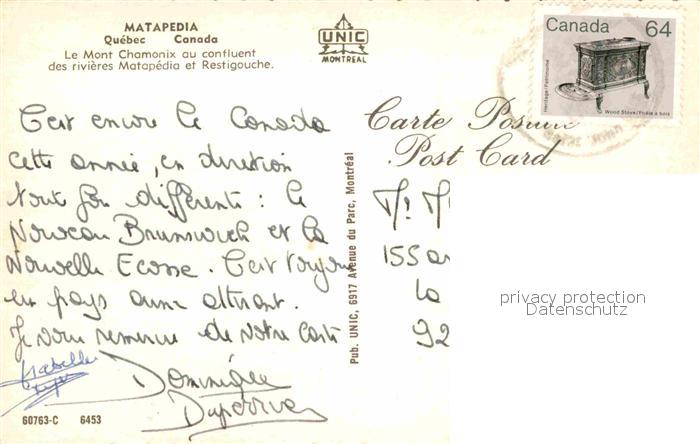 MATAPEDIA
Québec Canada
Le Mont Chamonix au confluent
des rivières Matapédia et Restigouche.
UNIC
MONTREAL
Canada 64
Heritage/Patrimoine
Wood Stove/Poêle à bois
Carte Postale
Post Card
C'est encore le Canada
cette année, en direction
tout différente : le
Nouveau Brunswich et la
Nouvelle Ecosse. C'est toujours
un pays aussi attirant.
Je vous remercie de votre carte
Isabelle
Dominique
Pub. UNIC, 6917 Avenue du Parc, Montréal
M! M
155 a
La
92
privacy protection
Datenschutz
60763-C 6453